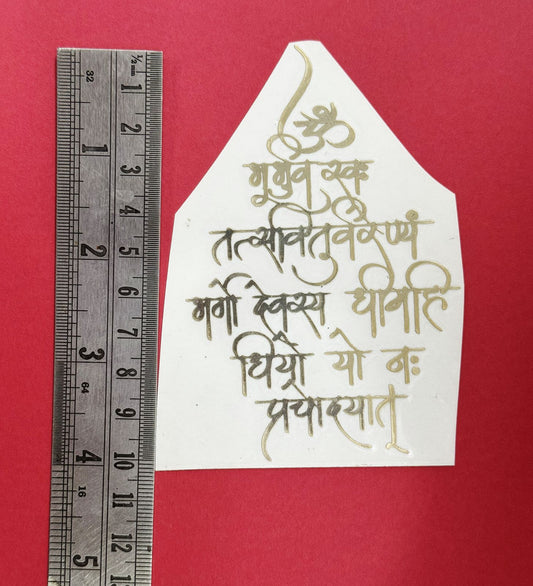 ॐ
भूर्भुव स्वः
तत्सवितुर्वरेण्यं
भर्गो देवस्य धीमहि
धियो यो नः
प्रचोदयात्
½ mm
1 2 3 4 5 6 7 8 9 10 11 12 13
32 1 2 3 64 4 16 5